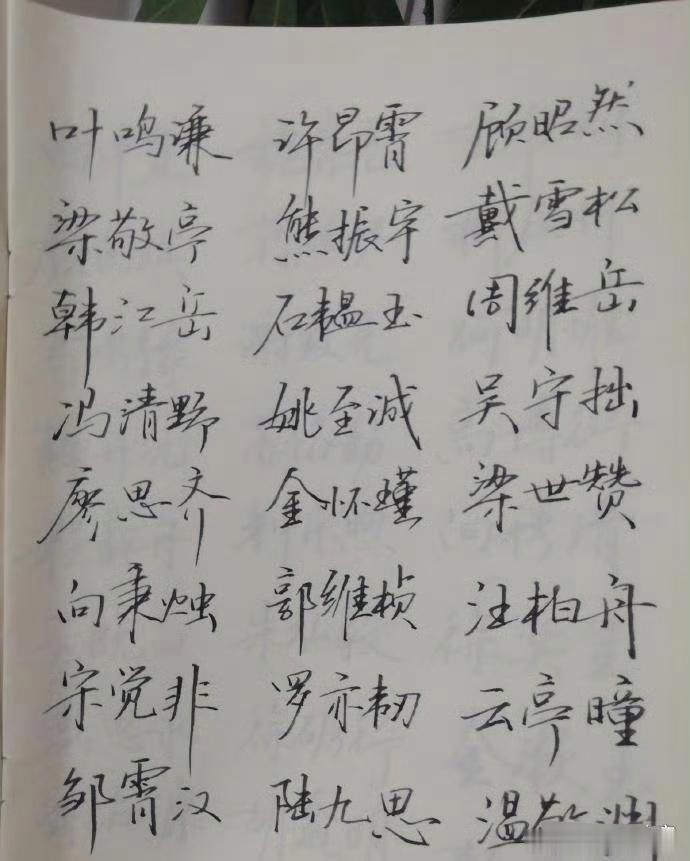 叶鸣谦 许昂霄 顾昭然
梁敬亭 熊振宇 戴雪松
韩江岳 石韫玉 周维岳
冯清野 姚至诚 吴守拙
廖思齐 金怀瑾 梁世赞
向秉烛 郭维桢 汪柏舟
宋觉非 罗亦韧 云亭瞳
邹霄汉 陆九思 温